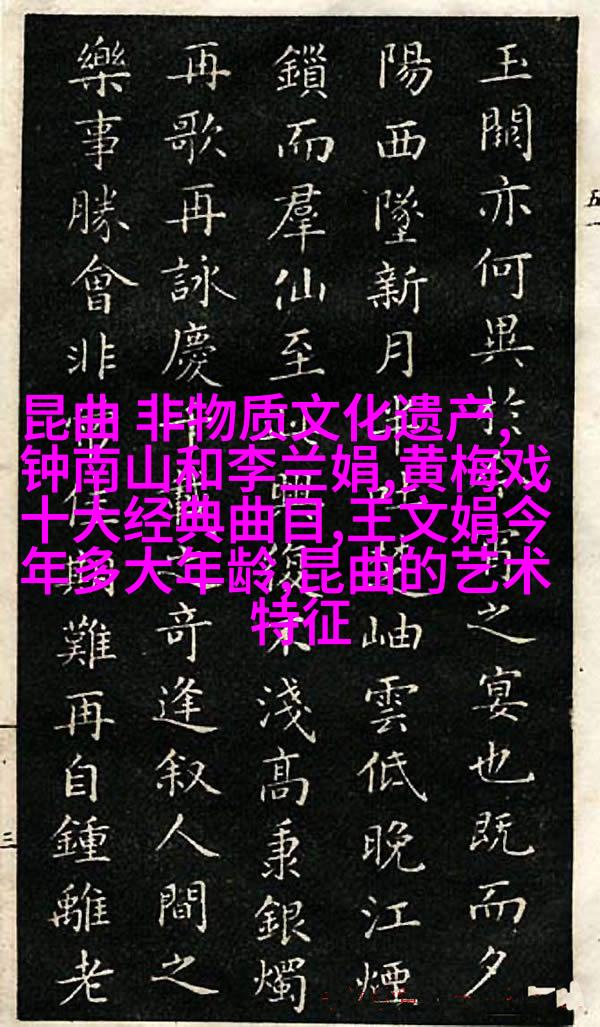 昆曲 非物质文化遗产,
钟南山和李兰娟,黄梅戏
十大经典曲目,王文娟今
年多大年龄,昆曲的艺术
特征
玉闕亦何異於之宴也既而夕
陽西墜新月半吐楚岫雲低晚江煙
鎖而羣仙至興復不淺高秉銀燭
再歌再詠慶千之奇逢叙人間之
樂事勝會非難再自鍾離老
五
三